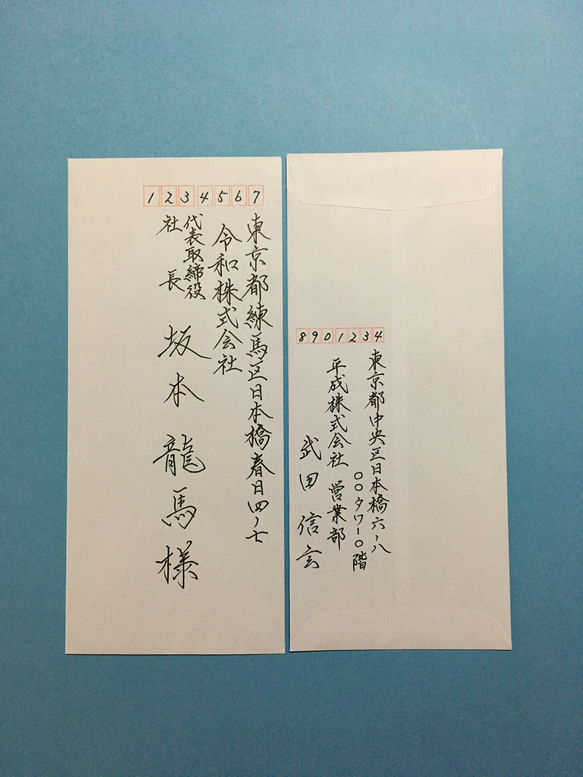 1234567
東京都練馬区日本橋春日四ノ七
令和株式会社
代表取締役
社長
坂本龍馬様
8901234
東京都中央区日本橋六ノ八
〇〇タワー〇階
平成株式会社 営業部
武田信玄